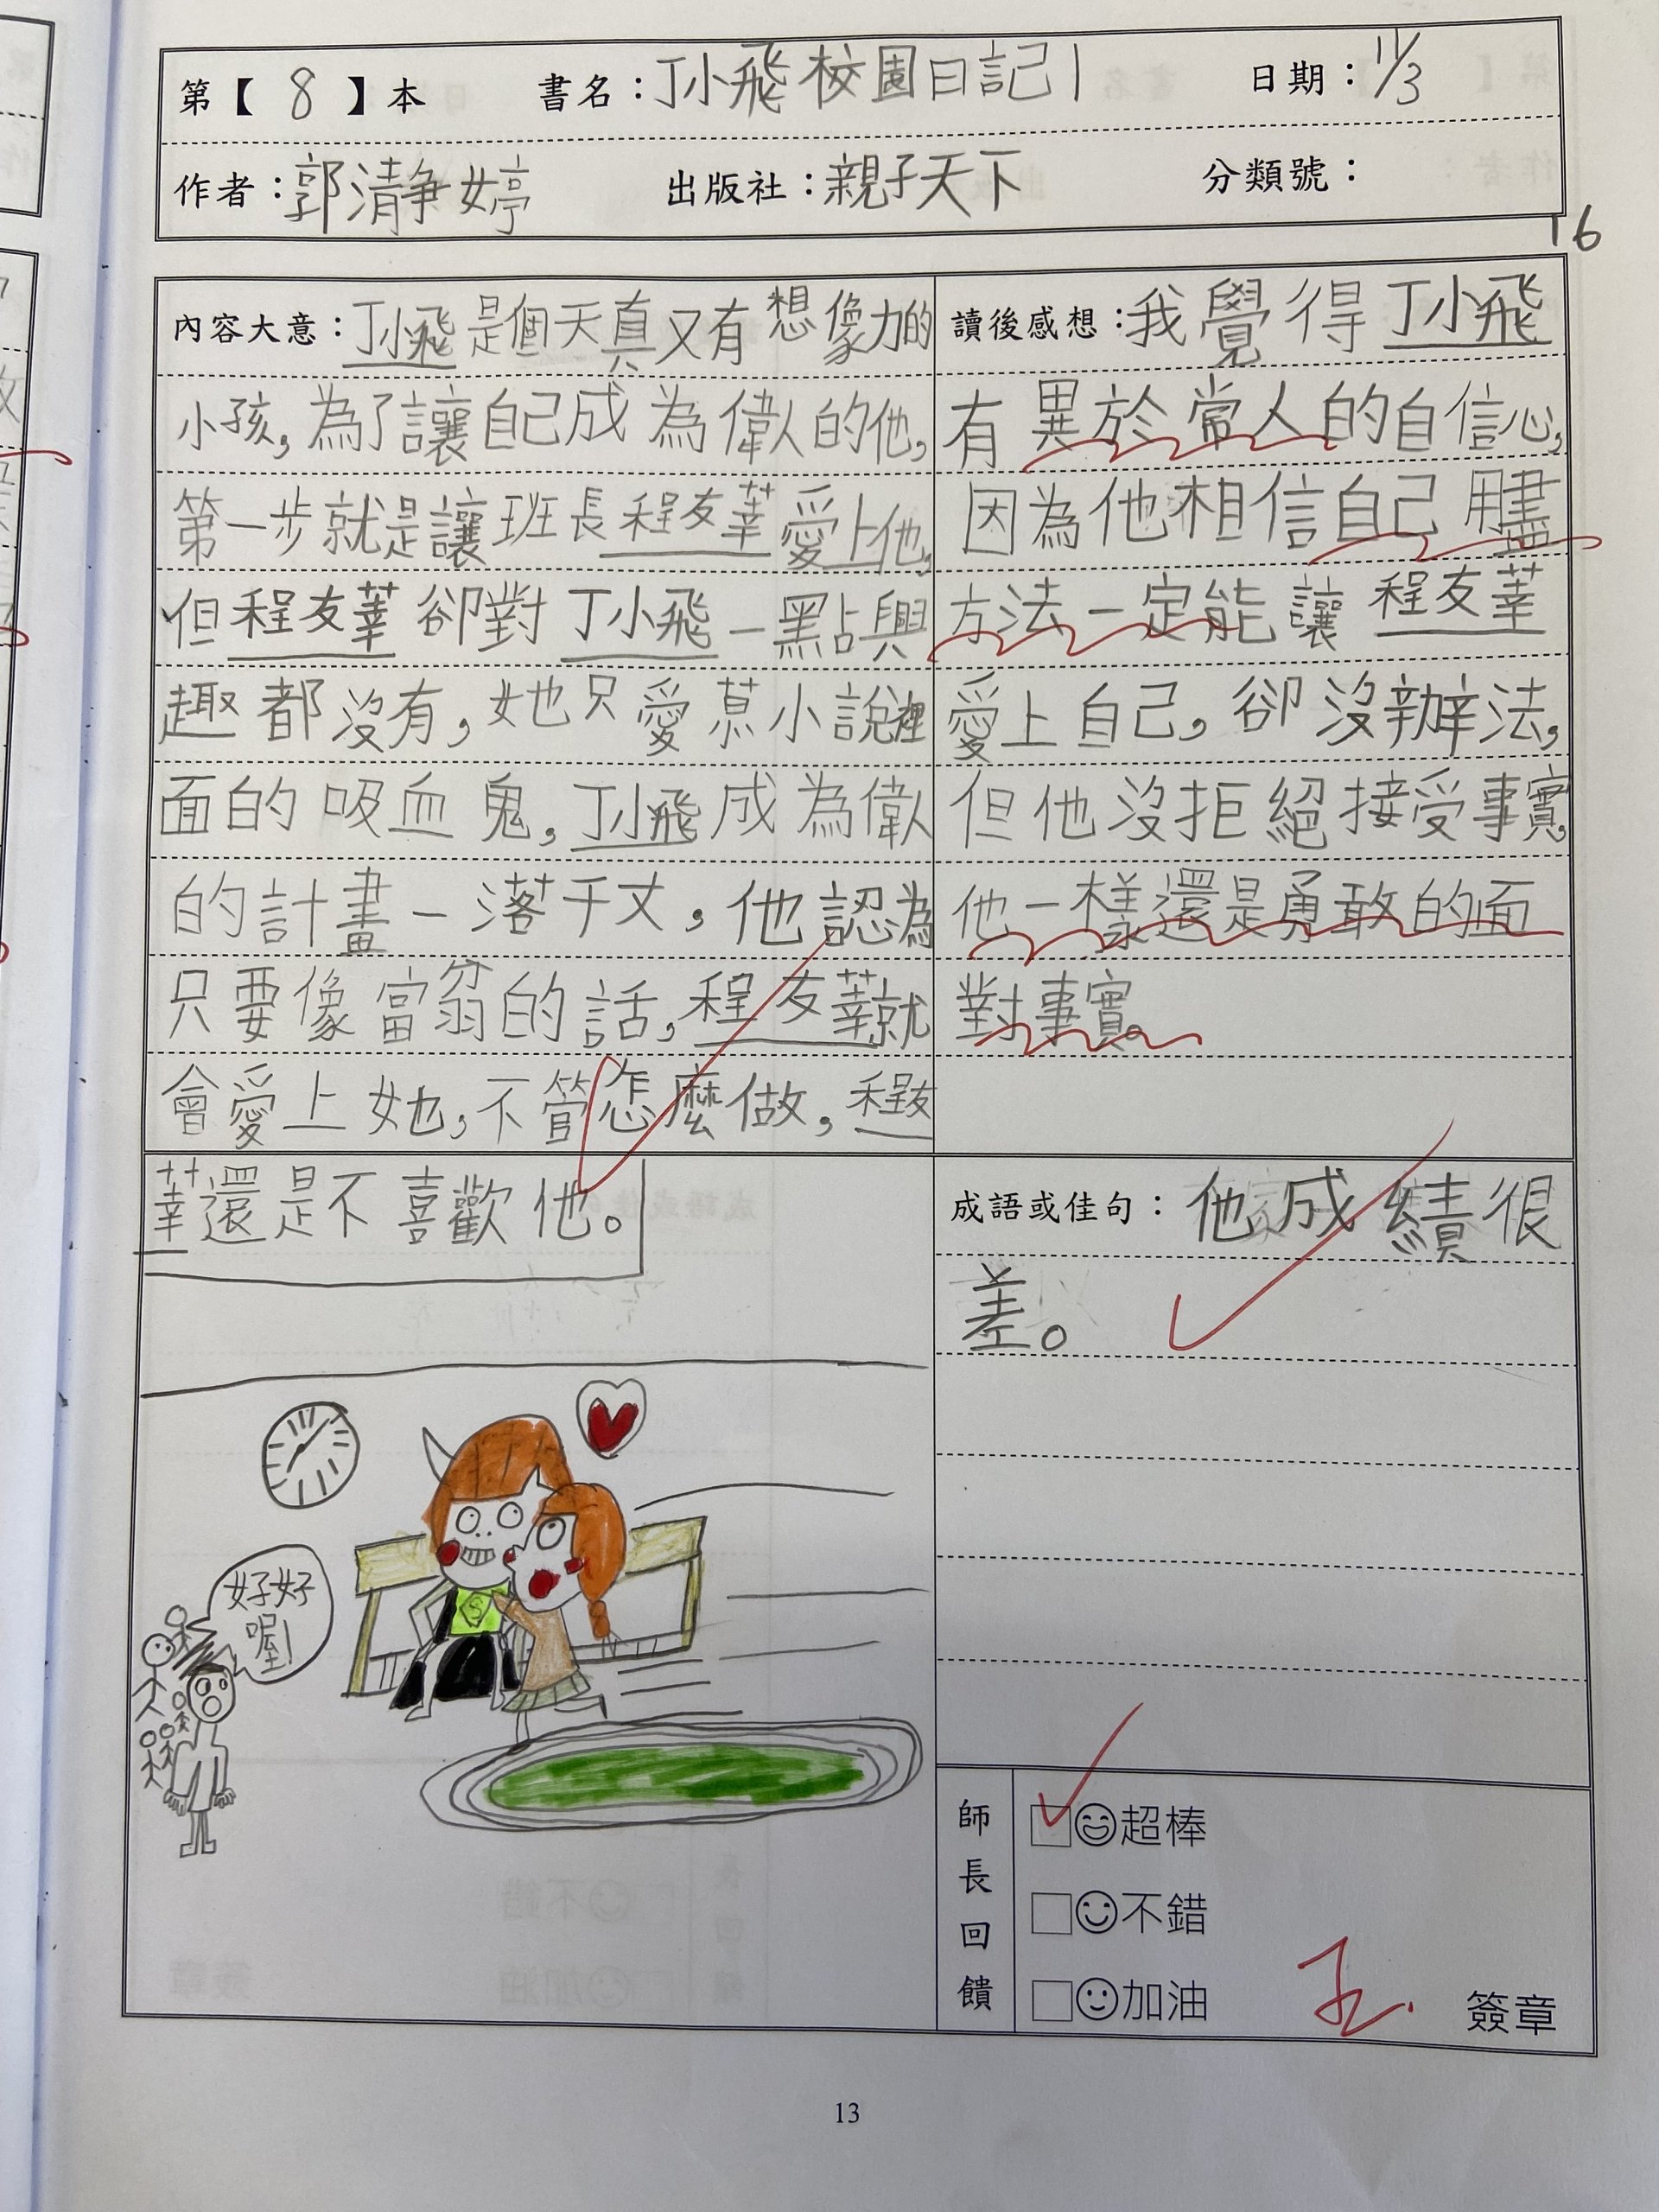 第【 8 】本 書名：丁小飛校園日記1 日期：11/3
作者：郭瀞婷 出版社：親子天下 分類號：
16
內容大意：丁小飛是個天真又有想像力的
小孩，為了讓自己成為偉人的他，
第一步就是讓班長程友莘愛上他，
但程友莘卻對丁小飛一點興
趣都沒有，她只愛慕小說裡
面的吸血鬼，丁小飛成為偉人
的計畫一落千丈，他認為
只要像富翁的話，程友莘就
會愛上她，不管怎麼做，程友
莘還是不喜歡他。
讀後感想：我覺得丁小飛
有異於常人的自信心，
因為他相信自己用盡
方法一定能讓程友莘
愛上自己，卻沒辦法，
但他沒拒絕接受事實，
他一樣還是勇敢的面
對事實。
成語或佳句：他成績很
差。
好好
喔！
師長回饋
超棒
不錯
加油
簽章
13